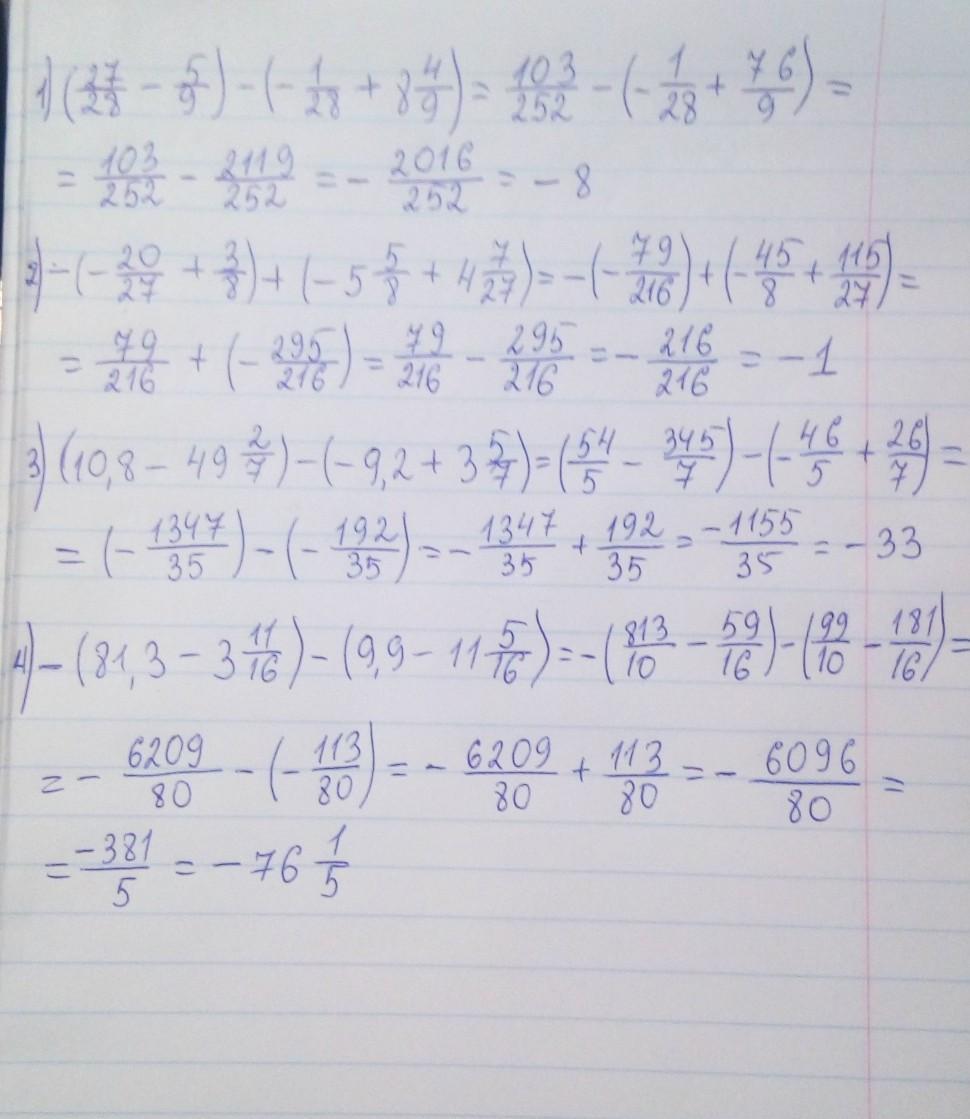 1) (27/28 − 5/9) − (− 1/28 + 8 4/9) = 103/252 − (− 1/28 + 76/9) =
= 103/252 − 2119/252 = − 2016/252 = − 8
2) −(− 20/27 + 3/8) + (− 5 5/8 + 4 7/27) = −(− 79/216) + (− 45/8 + 115/27) =
= 79/216 + (− 295/216) = 79/216 − 295/216 = − 216/216 = − 1
3) (10,8 − 49 2/7) − (− 9,2 + 3 5/7) = (54/5 − 345/7) − (− 46/5 + 26/7) =
= (− 1347/35) − (− 192/35) = − 1347/35 + 192/35 = −1155/35 = − 33
4) − (81,3 − 3 11/16) − (9,9 − 11 5/16) = −(813/10 − 59/16) − (99/10 − 181/16) =
= − 6209/80 − (− 113/80) = − 6209/80 + 113/80 = − 6096/80 =
= −381/5 = − 76 1/5